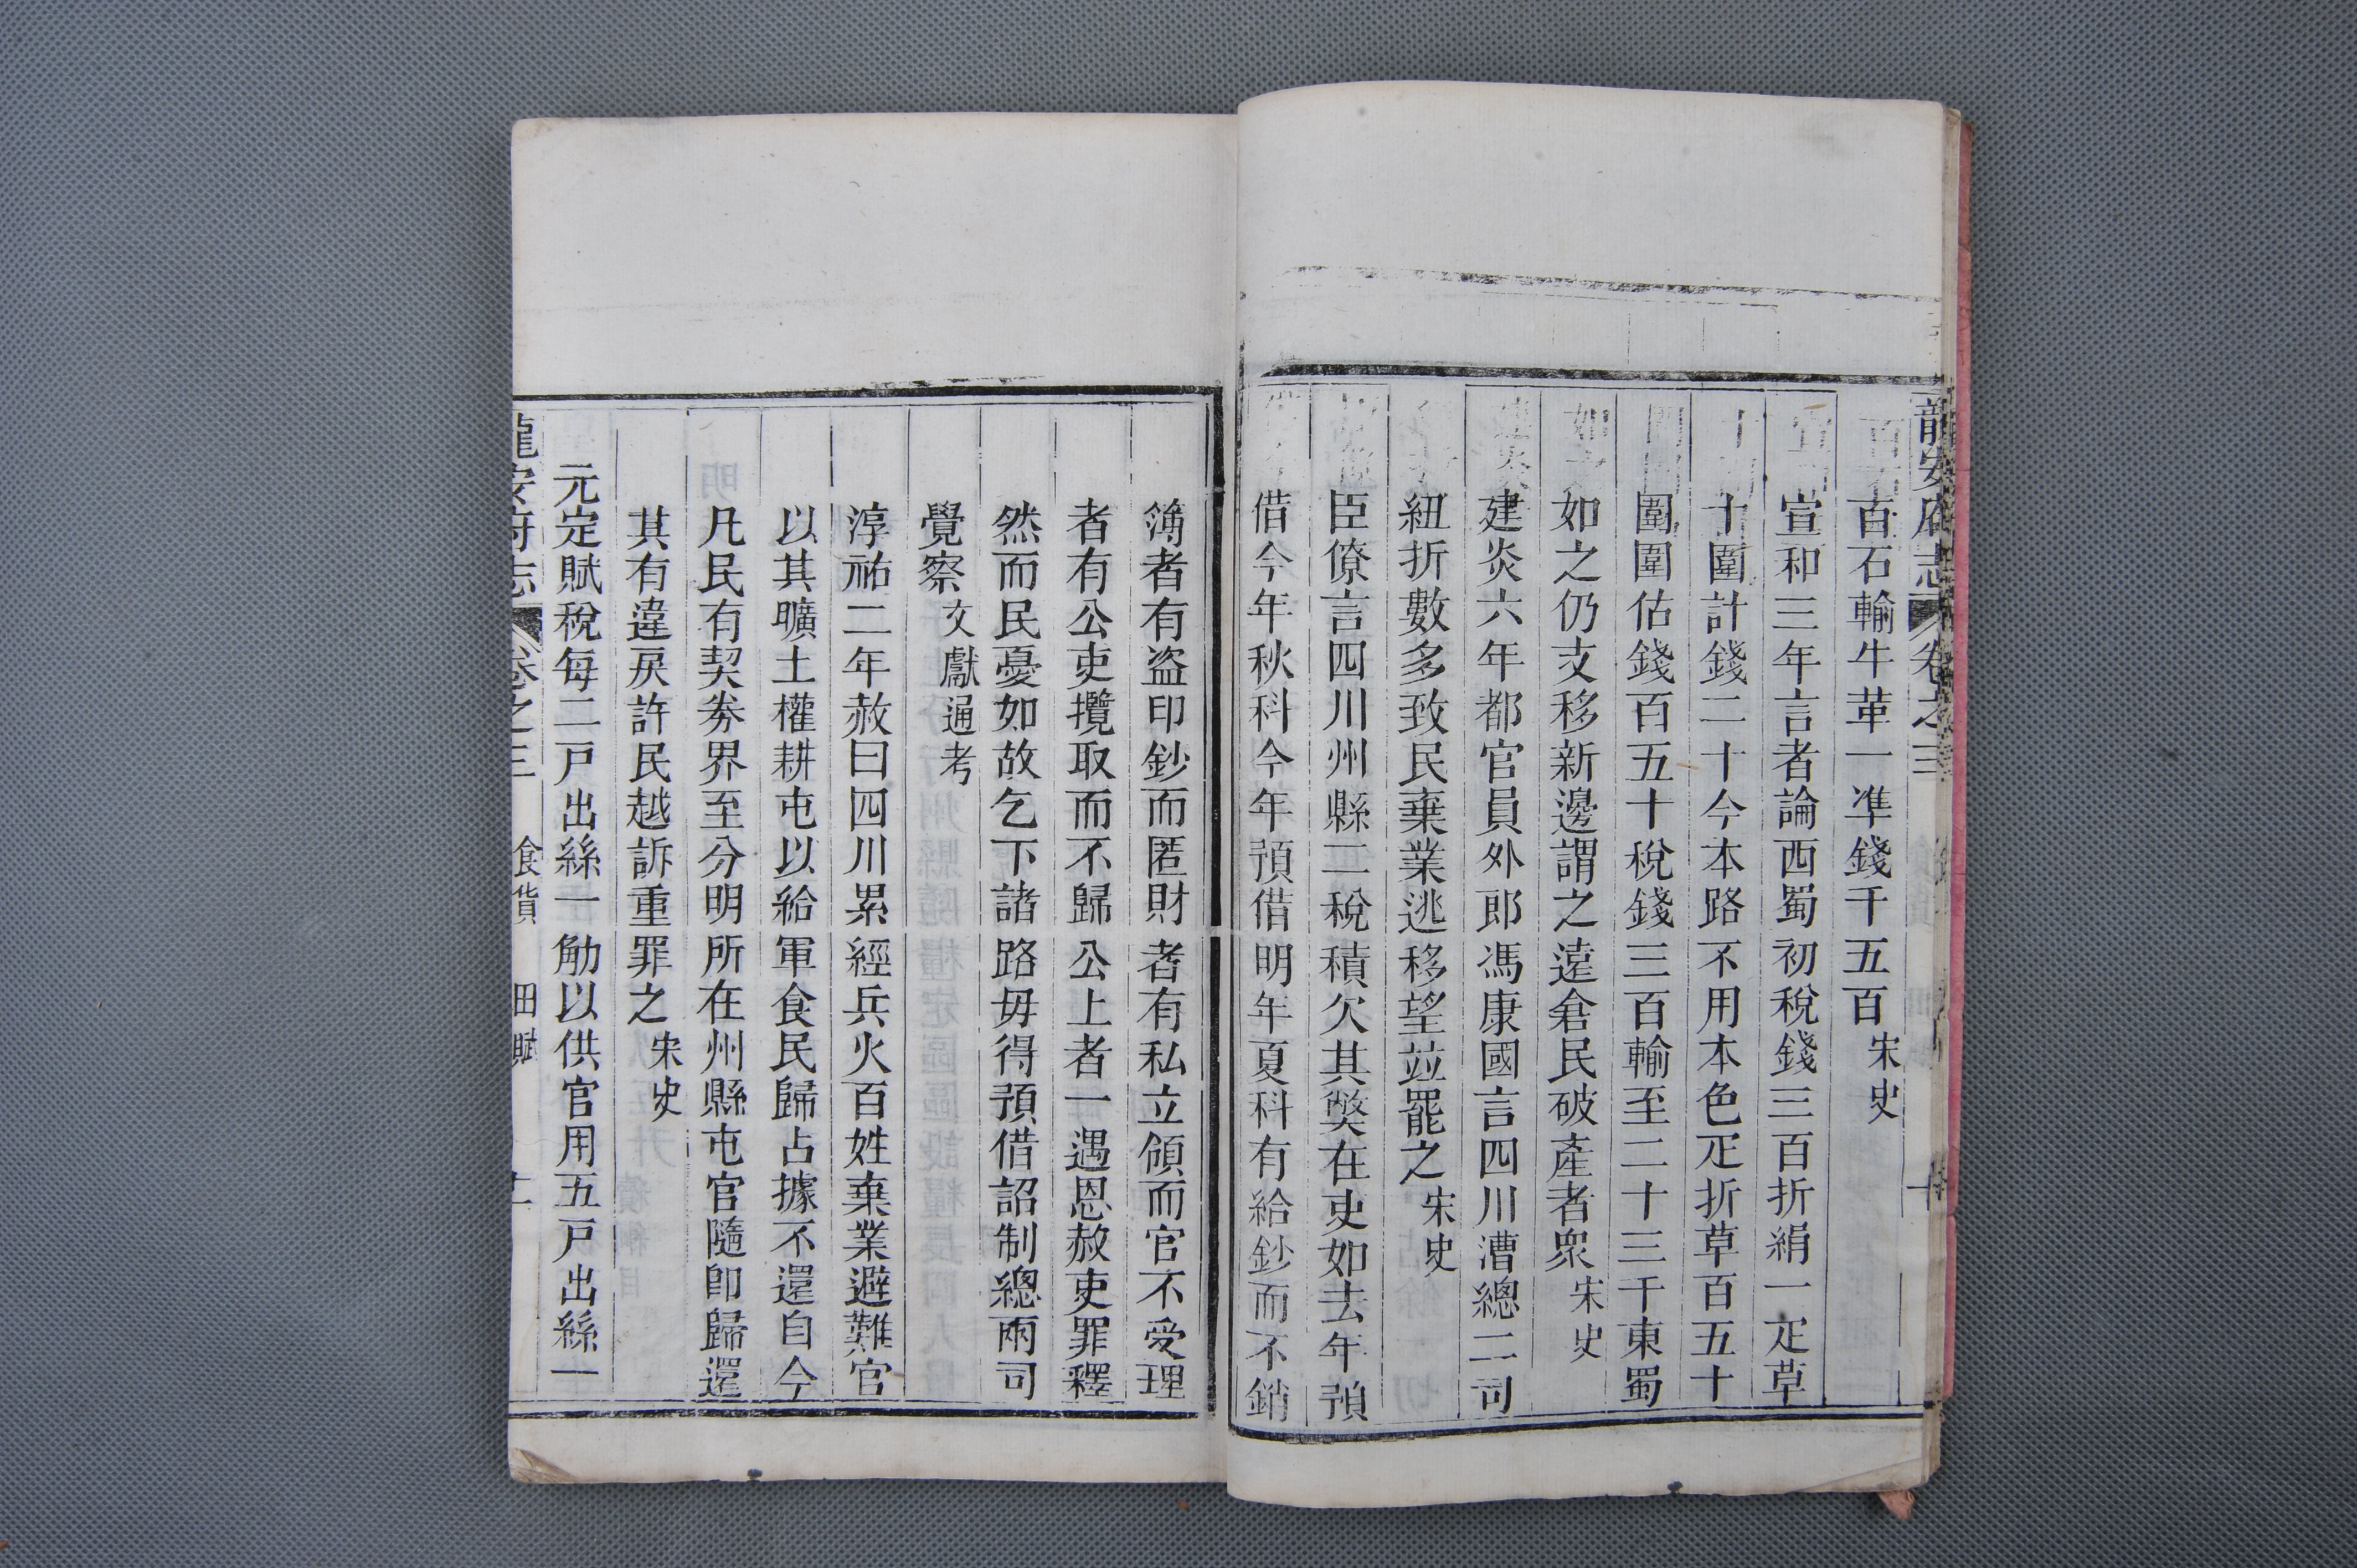 龍安府志 卷之三 十
百石輸牛革一準錢千五百宋史
宣和三年言者論西蜀初稅錢三百折絹一疋草
十圍計錢二十今本路不用本色疋折草百五十
圍圍估錢百五十稅錢三百輸至二十三千東蜀
如之仍支移新邊謂之遠倉民破產者眾宋史
建炎六年都官員外郎馮康國言四川漕總二司
紐折數多致民棄業逃移望並罷之宋史
臣僚言四川州縣二稅積欠其獘在吏如去年預
借今年秋科今年預借明年夏科有給鈔而不銷
簿者有盜印鈔而匿財者有私立領而官不受理
者有公吏攬取而不歸公上者一遇恩赦吏罪釋
然而民憂如故乞下諸路毋得預借詔制總兩司
覺察文獻通考
淳祐二年赦曰四川累經兵火百姓棄業避難官
以其曠土權耕屯以給軍食民歸占據不還自今
凡民有契劵界至分明所在州縣屯官隨卽歸還
其有違戾許民越訴重罪之宋史
元定賦稅每二戸出絲一觔以供官用五戸出絲一
龍安府志 卷之三 食貨 田賦 十一